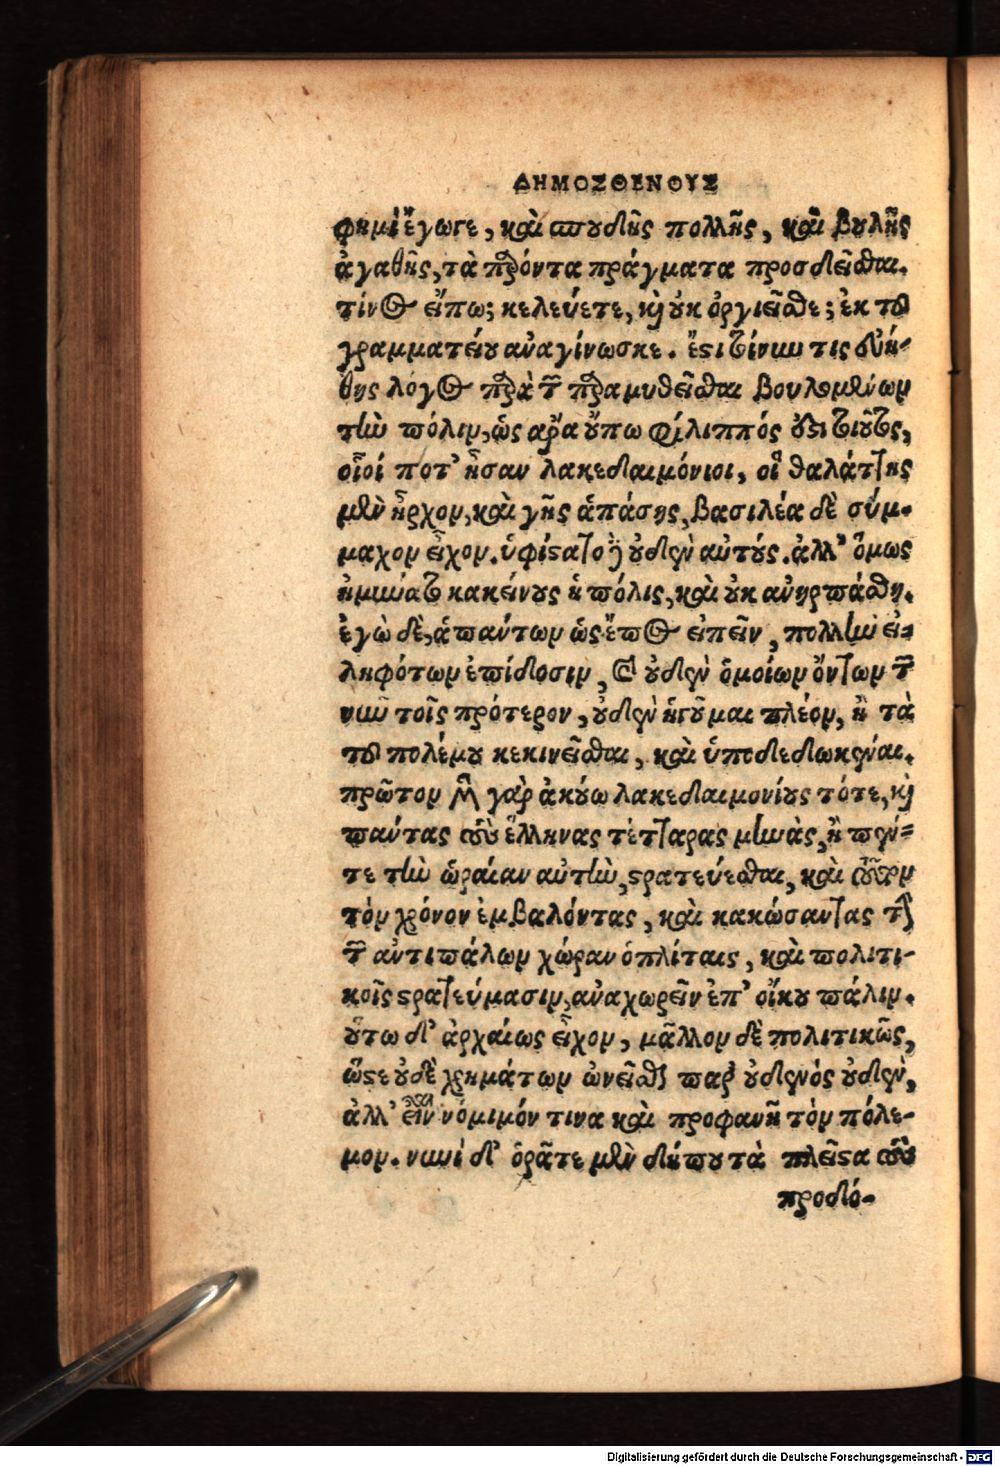 ΔΗΜΟΣΘΕΝΟΥΣ
φημὶ ἔγωγε, καὶ σπουδῆς πολλῆς, καὶ βουλῆς
ἀγαθῆς, τὰ παρόντα πράγματα προσδεῖσθαι.
τίνος εἴπω; κελεύετε, καὶ οὐκ ὀργιεῖσθε; ἐκ τοῦ
γραμματείου ἀναγίνωσκε. ἔστι τοίνυν τις εὐή-
θης λόγος παρὰ τῶν παραμυθεῖσθαι βουλομένων
τὴν πόλιν, ὡς ἄρα οὔπω φίλιππός ἐστι τοιοῦτος,
οἷοί ποτ' ἦσαν λακεδαιμόνιοι, οἳ θαλάττης
μὲν ἦρχον, καὶ γῆς ἁπάσης, βασιλέα δὲ σύμ-
μαχον εἶχον. ὑφίστατο δ' οὐδὲν αὐτούς. ἀλλ' ὅμως
ἠμύνατο κακείνους ἡ πόλις, καὶ οὐκ ἀνηρπάσθη.
ἐγὼ δὲ, ἁπάντων ὡς ἔπος εἰπεῖν, πολλὴν εἰ-
ληφότων ἐπίδοσιν, καὶ οὐδὲν ὁμοίων ὄντων τῶν
νῦν τοῖς πρότερον, οὐδὲν ἡγοῦμαι πλέον, ἢ τὰ
τοῦ πολέμου κεκινεῖσθαι, καὶ ὑποδεδωκέναι.
πρῶτον μὲν γὰρ ἀκούω λακεδαιμονίους τότε, καὶ
πάντας τοὺς ἕλληνας τέτταρας μῆνας, ἢ πέν-
τε τὴν ὡραίαν αὐτὴν, στρατεύεσθαι, καὶ τοῦτον
τὸν χρόνον ἐμβαλόντας, καὶ κακώσαντας τὴν
τῶν ἀντιπάλων χώραν ὁπλίταις, καὶ πολιτι-
κοῖς στρατεύμασιν, ἀναχωρεῖν ἐπ' οἴκου πάλιν.
οὕτω δ' ἀρχαίως εἶχον, μᾶλλον δὲ πολιτικῶς,
ὥστε οὐδὲ χρημάτων ὠνεῖσθαι παρ' οὐδενὸς οὐδὲν,
ἀλλ' εἶναι νόμιμόν τινα καὶ προφανῆ τὸν πόλε-
μον. νυνὶ δ' ὁρᾶτε μὲν δήπου τὰ πλεῖστα τοὺς
προδό-
Digitalisierung gefördert durch die Deutsche Forschungsgemeinschaft - DFG